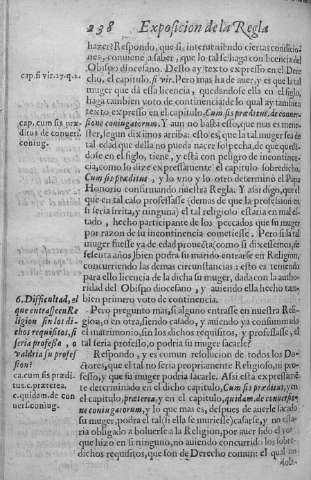 238 Exposicion de la Regla
hazer? Respondo, que si, interuiniendo ciertas condicio-
nes, conuiene a saber, que lo tal se haga con licencia del
Obispo diocesano. Desto ay texto expresso en el Dere-
cap. si vir. 27. q. 2.
cho, el capitulo, si vir. Pero mas ha de auer, y es que la tal
muger que dá esta licencia, quedandose ella en el siglo,
haga tambien voto de continencia: de lo qual ay tambiẽ
texto expresso en el capitulo, Cum sis præditus, de conuer-
cap. cum sis præ-
ditus de conuers.
coniug.
sione coniugatorum. Y aun no basta esto, que mas es mene-
ster, segun diximos arriba: esto es, que la tal muger sea de
tal edad que della no pueda nacer sospecha, de que quedã-
dose en el siglo, tiene, y está con peligro de incontinen-
cia, como lo dize expressamente el capitulo sobredicho,
Cum sis præditus. Y lo vno y lo otro determinò el Papa
Honorio confirmando nuestra Regla. Y assi digo, que el
que en tal caso professasse (demas de que la profession es
si seria irrita, y ninguna) el tal religioso estaria en mal es-
tado, hecho participante de los peccados que su muger
por razon de su incontinencia cometiesse. Pero si la tal
muger fuesse ya de edad prouecta; como si dixessemos, se-
senta años) bien podria su marido entrarse en Religion,
concurriendo las demas circunstancias: esto es teniendo
para ello licencia de la dicha su muger, dada con la autho-
ridad del Obispo diocesano, y auiendo ella hecho tam-
bien primero voto de continencia.
6. Difficultad, el
que entrasse en Re
ligion sin los di-
chos requisitos, si
seria professo, o
valdria su profes-
sion?
Pero pregunto mas, si alguno entrasse en nuestra Reli
gion, o en otra, siendo casado, y auiendo ya consummado
el matrimonio, sin los dichos requisitos, y professasse, si
tal seria professo, o podria su muger sacarle?
Respondo, y es comun resolucion de todos los Do-
ctores, que el tal no seria propriamente Religioso, ni pro-
fesso, y que su muger podria sacarle. Assi está expressamẽ
ca. cum sis prædi-
tus. c. præterea.
c. quidam. de con-
uers. coniug.
te determinado en el dicho capitulo, Cum sis præditus, y en
el capitulo, præterea, y en el capitulo, quidam, de conuersio-
ne coniugatorum, y lo que mas es, despues de auerle sacado
su muger, podra el tal (si ella se muriesse) casarse, y no esta-
ria obligado a boluerse a la Religion, por auer sido el voto
que hizo en si ninguno, no auiendo concurrido los sobre-
dichos requisitos, que son de Derecho comun: el qual no